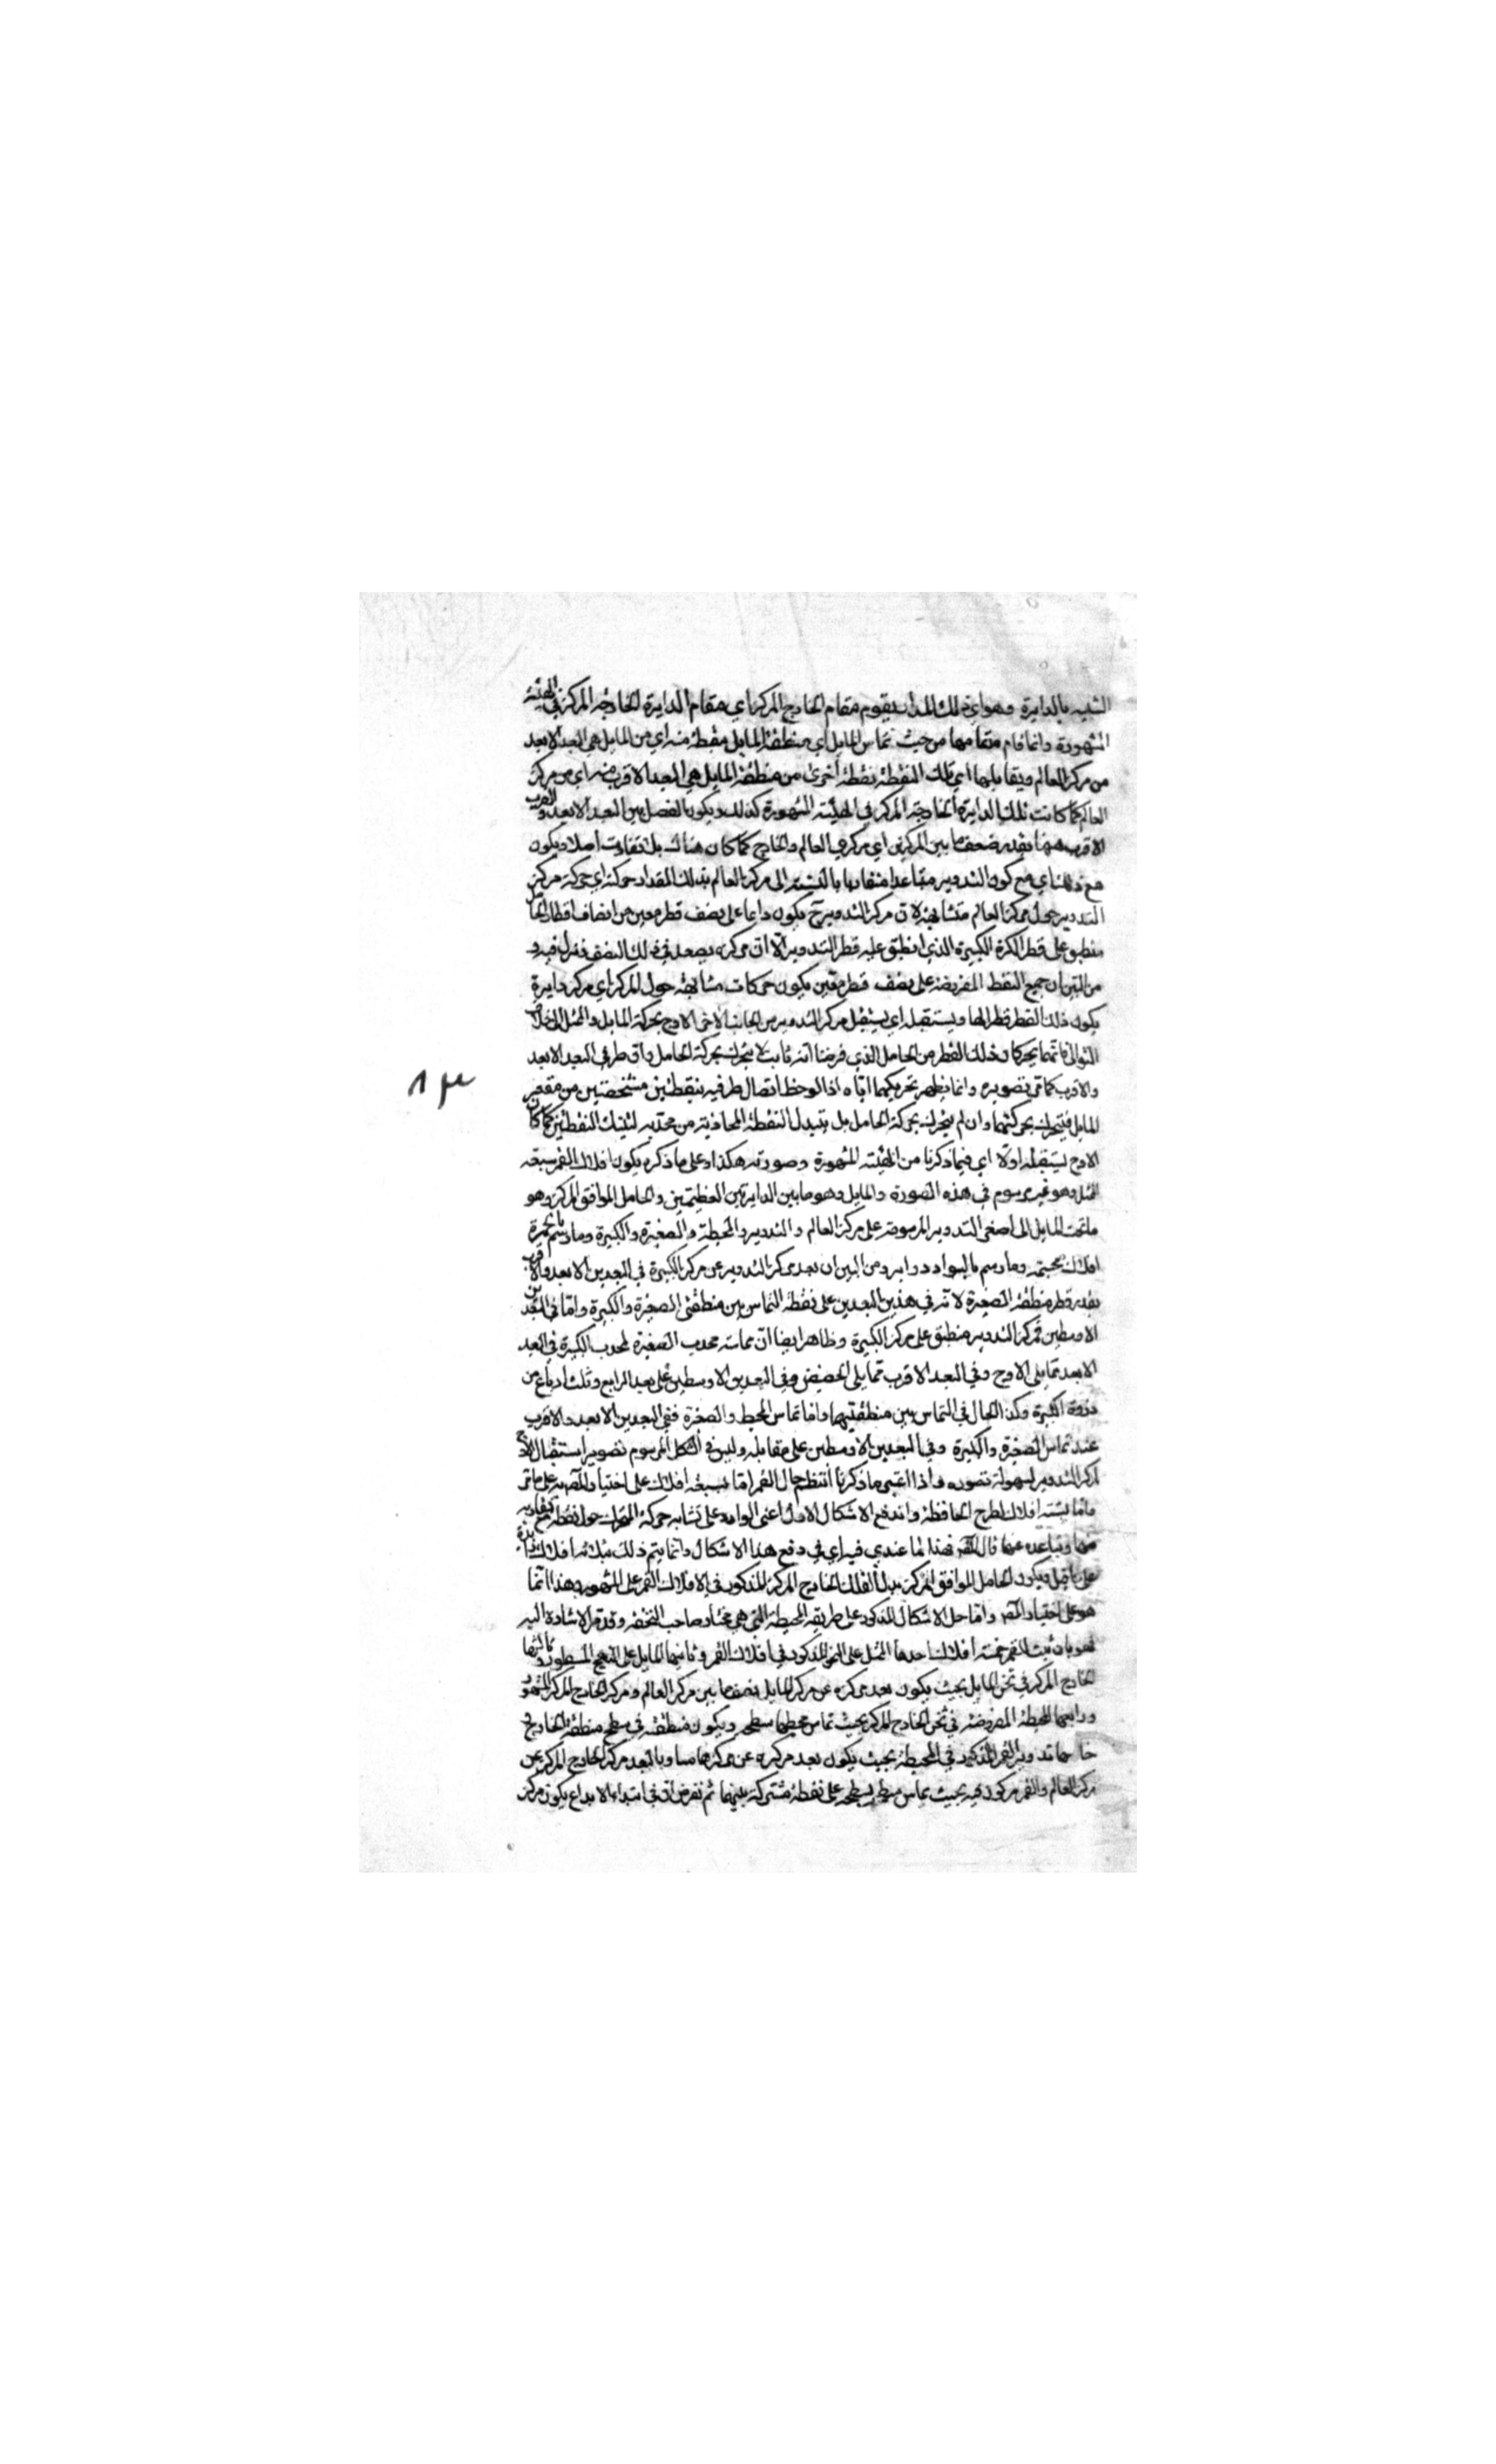 الشبيه بالدايرة وهو اي ذلك المدار يقوم مقام الخارج المركز اي مقام الدايرة الخارجة المركز في الهيئة
المشهورة وانما قام مقامها من حيث تماس المايل اي منطقة المايل بنقطة منه اي من المايل هي البعد الابعد
من مركز العالم ويقابلها اي تلك النقطة نقطة أخرى من منطقة المايل هي البعد الاقرب منه اي من مركز
العالم كما كانت تلك الدايرة الخارجة المركز في الهيئة المشهورة كذلك ويكون الفصل بين البعد الابعد و البعد
الاقرب ههنا بقدر ضعف ما بين المركزين اي مركزي العالم والخارج كما كان هناك بلا تفاوت اصلا ويكون
مع ذلك اي مع كون التدوير متباعدا متقاربا بالنسبة الى مركز العالم بذلك المقدار حركته اي حركة مركز
التدوير حول مركز العالم متشابهة لان مركز التدوير ح يكون دايما على نصف قطر معين من انصاف اقطار الحامل
منطبق على قطر الكرة الكبيرة الذي انطبق عليه قطر التدوير الا ان مركزه يصعد في ذلك النصف وينزل فيه و
من البين ان جميع النقط المفروضة على نصف قطر معين يكون حركات متشابهة حول المركز اي مركز دايرة
يكون ذلك القطر قطرا لها ويستقبله اي يستقبل مركز التدوير من الجانب الاخر الاوج بحركة المايل والممثل الى خلاف
التوالي فانهما يحركان ذلك القطر من الحامل الذي فرضنا انه ثابت لا يتحرك بحركة الحامل وان طرفي البعد الابعد
والاقرب كما مر تصويره وانما يظهر تحريكهما اياه اذا لوحظ اتصال طرفيه بنقطتين مشخصتين من مقعر
المايل فيتحرك بحركتهما وان لم يتحرك بحركة الحامل بل يتبدل النقطة المحاذية من محدبه لتينك النقطتين كما كان
الاوج يستقبله اولا اي فيما ذكرنا من الهيئة المشهورة وصورته هكذا وعلى ما ذكره يكون افلاك القمر سبعة
الممثل وهو غير مرسوم في هذه الصورة والمايل وهو ما بين الدايرتين العظيمتين والحامل الموافق المركز وهو
ما تحت المايل الى اصغر التدوير المرسومة على مركز العالم والتدوير والمحيطة والصغيرة والكبيرة وما رسم بالحمرة
افلاك مجسمة وما رسم بالسواد دواير ومن البين ان بعد مركز التدوير عن مركز الكبيرة في البعدين الابعد والاقرب
بقدر قطر منطقة الصغيرة لانه في هذين البعدين على نقطة التماس بين منطقتي الصغيرة والكبيرة واما في البعدين
الاوسطين فمركز التدوير منطبق على مركز الكبيرة وظاهر ايضا ان مماسة محدب الصغيرة لمحدب الكبيرة في البعد
الابعد مما يلي الاوج وفي البعد الاقرب مما يلي الحضيض وفي البعدين الاوسطين على بعد الربع وثلث ارباع من
ذروة الكبيرة وكذا الحال في التماس بين منطقتيهما واما تماس المحيط والصغرة ففي البعدين الابعد والاقرب
عند تماس الصغيرة والكبيرة وفي البعدين الاوسطين على مقابله وليس في الشكل المرسوم تصوير استقبال الاوج
لمركز التدوير لسهولة تصوره واذا اعتبر ما ذكرنا انتظم حال القمر اما بسبعة افلاك على اختيار المصـ على ما مر
واما بستة افلاك لطرح الحافظة واندفع الاشكال الاول اعني الوارد على تشابه حركة المتحرك حول نقطة مع تقاربه
منها وتباعده عنها قال المصـ فهذا ما عندي فيه اي في دفع هذا الاشكال وانما يتم ذلك بثلثة افلاك زايدة
على ما قبل ويكون الحامل الموافق المركز بدل الفلك الخارج المركز المذكور في الافلاك القمر على المشهور وهذا انما
هو على اختيار المصـ واما حل الاشكال المذكور على طريقة المحيطة التي هي مختار صاحب التحفة وقد مر الاشارة اليه
فهو بان نثبت للقمر خمسة افلاك احدها الممثل على النحو المذكور في افلاك القمر وثانيها المايل على النهج المسطور وثالثها
الخارج المركز في ثخن المايل بحيث يكون بعد مركزه عن مركز المايل نصف ما بين مركز العالم ومركز الخارج المركز المشهور
ورابعها المحيطة المفروضة في ثخن الخارج المركز بحيث تماس محيطها سطحيه ويكون منطقته في سطح منطقة الخارج و
خامسها تدوير القمر المذكور في المحيطة بحيث يكون بعد مركزه عن مركزها مساويا لبعد مركز الخارج المركز عن
مركز العالم والقمر مركوز فيه بحيث يماس سطحه بسطحه على نقطة مشتركة بينهما ثم نفرض ان في ابتداء الابداع يكون مركز